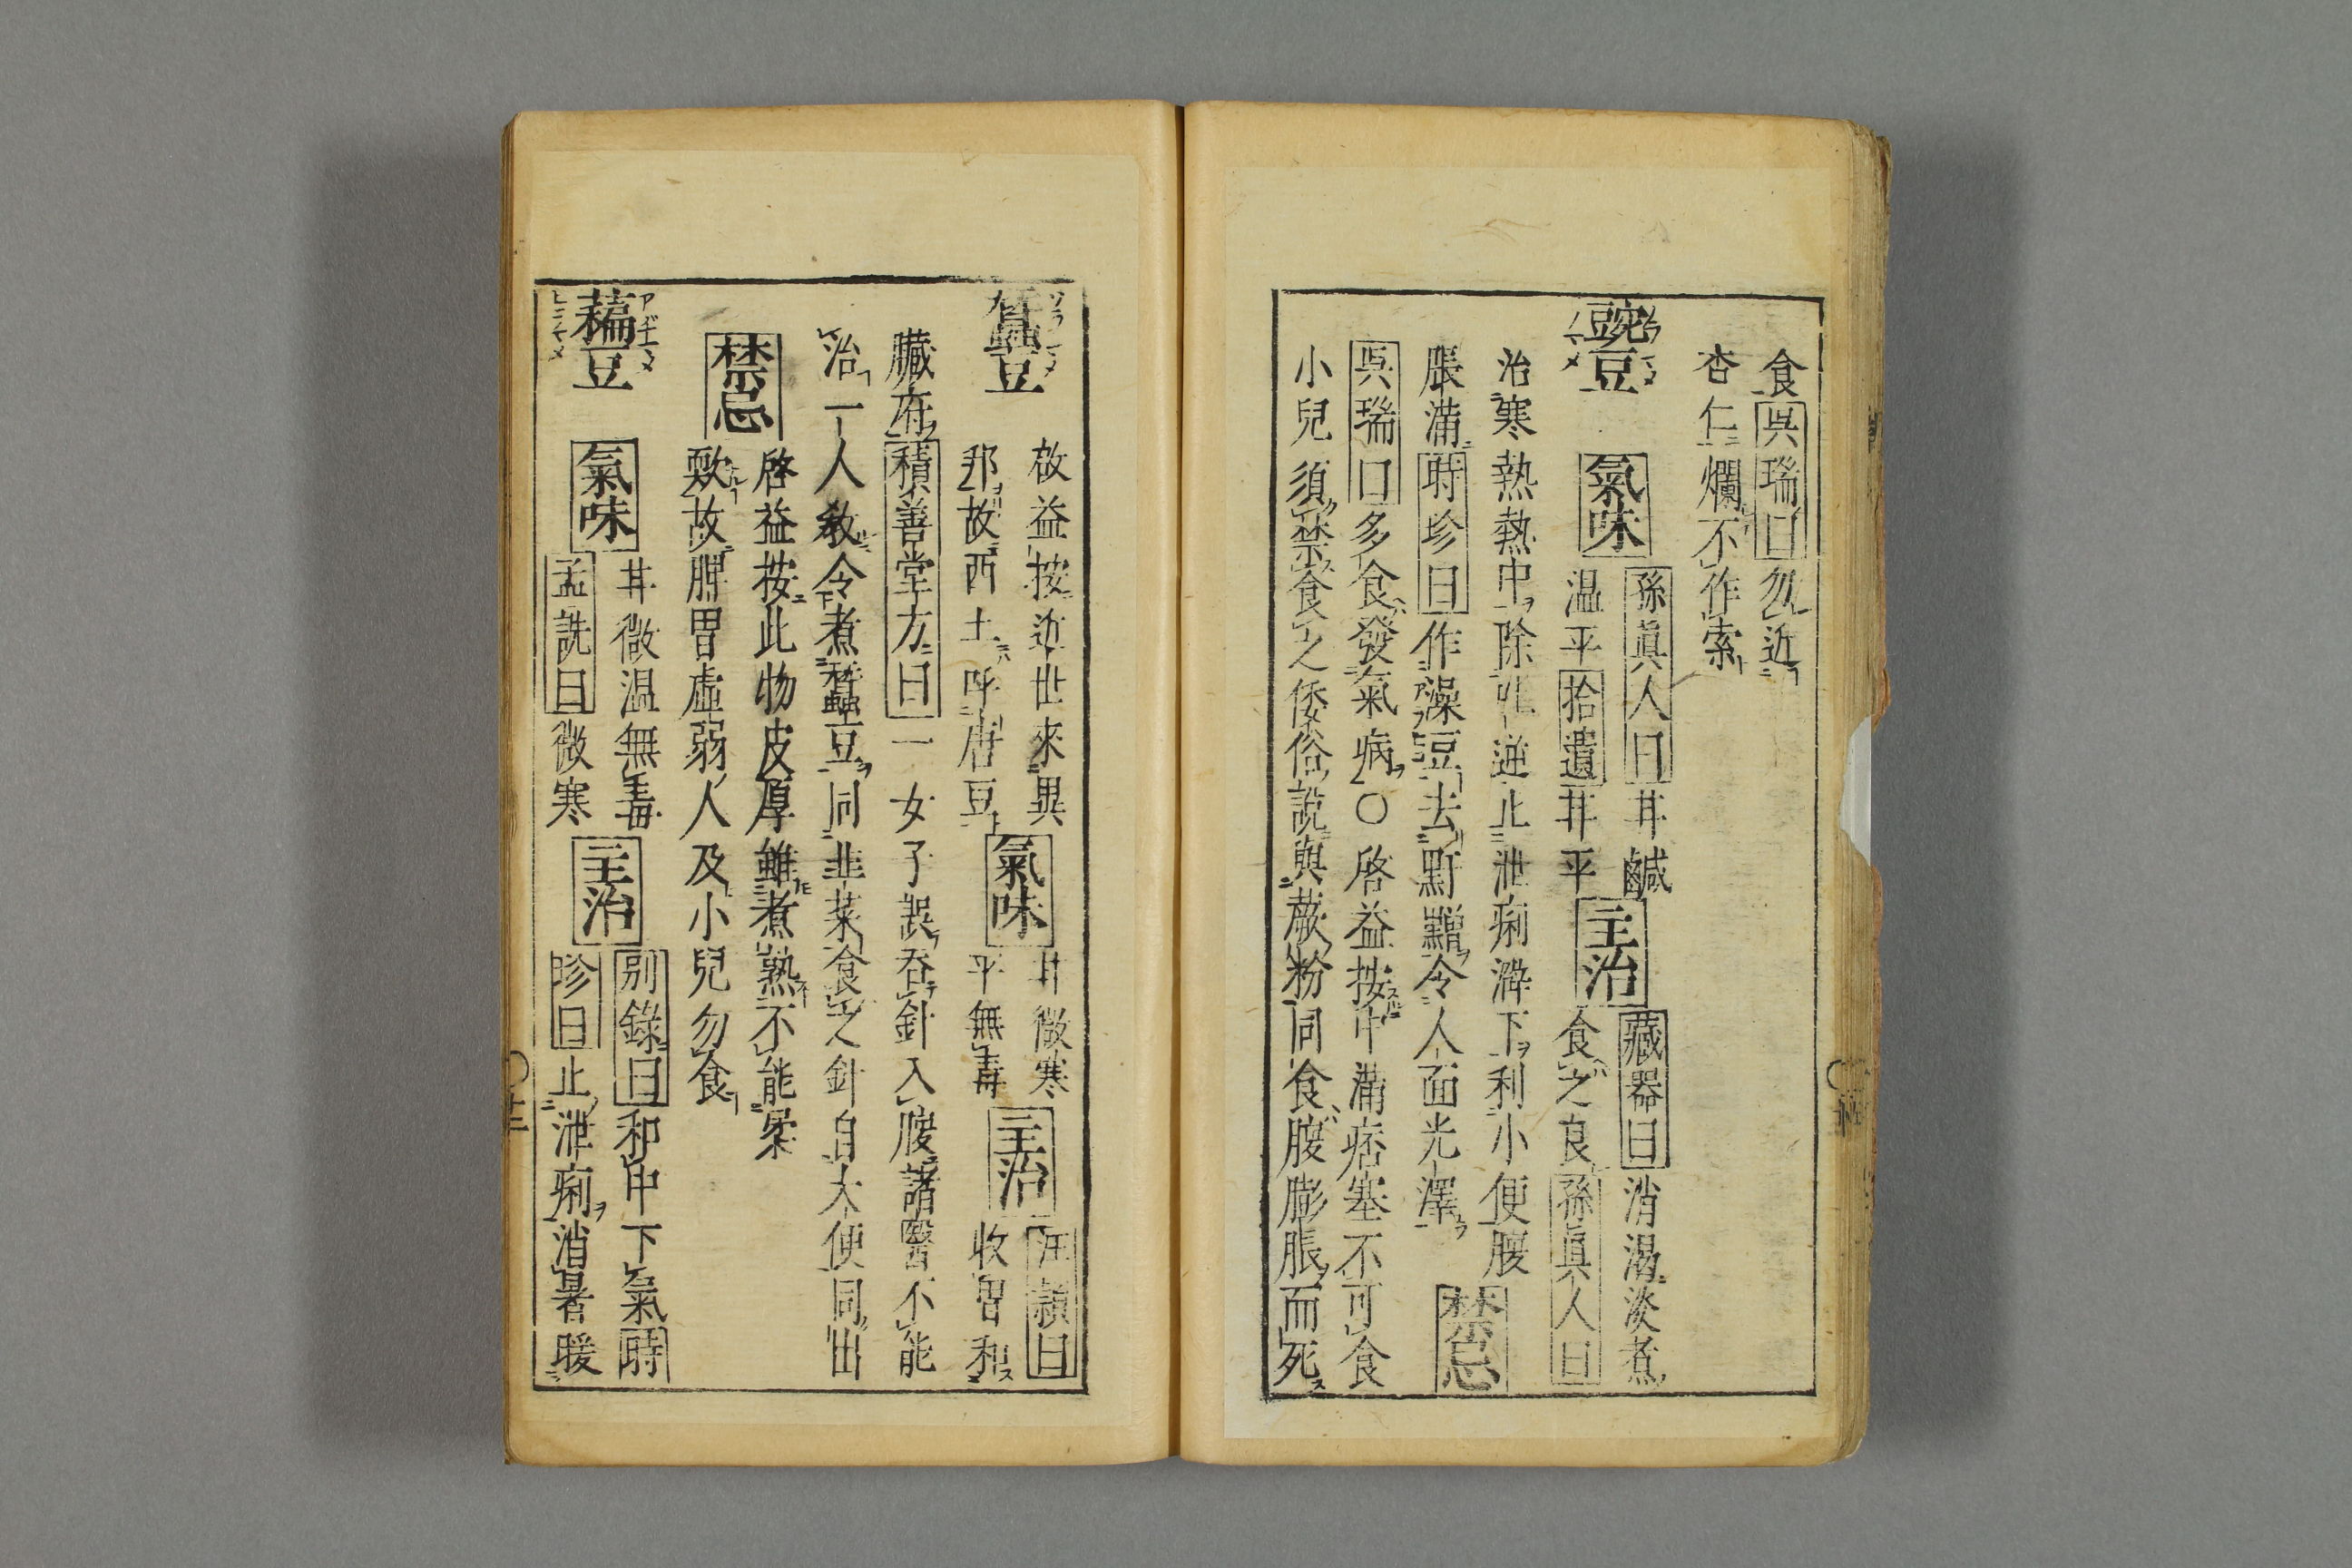 食呉瑞曰勿近
杏仁爛不作索
豌豆 氣味 孫眞人曰甘鹹
温平拾遺甘平 主治 藏器曰消渇淡煮
食之良孫眞人曰
治寒熱熱中除吐逆止泄痢澼下利小便腹
脹滿時珍曰作澡豆去䵟䵳令人面光澤 禁忌
呉瑞曰多食發氣病○啓益按中滿痞塞不可食
小兒須禁食之倭俗説與蕨粉同食腹膨脹而死
蠶豆 啟益按近世來異
邦故西土呼唐豆 氣味 甘微寒
平無毒 主治 汪頴曰
收胃和
臓腑積善堂方曰一女子誤吞針入腹諸醫不能
治一人教令煮蠶豆同韭菜食之針自大便同出
禁忌 啓益按此物皮厚雖煮熟不能柔
故脾胃虚弱人及小兒勿食
稨豆 アヂマメ
氣味 甘微温無毒
孟詵曰微寒 主治 別錄曰和中下氣時
珍曰止泄痢消暑暖